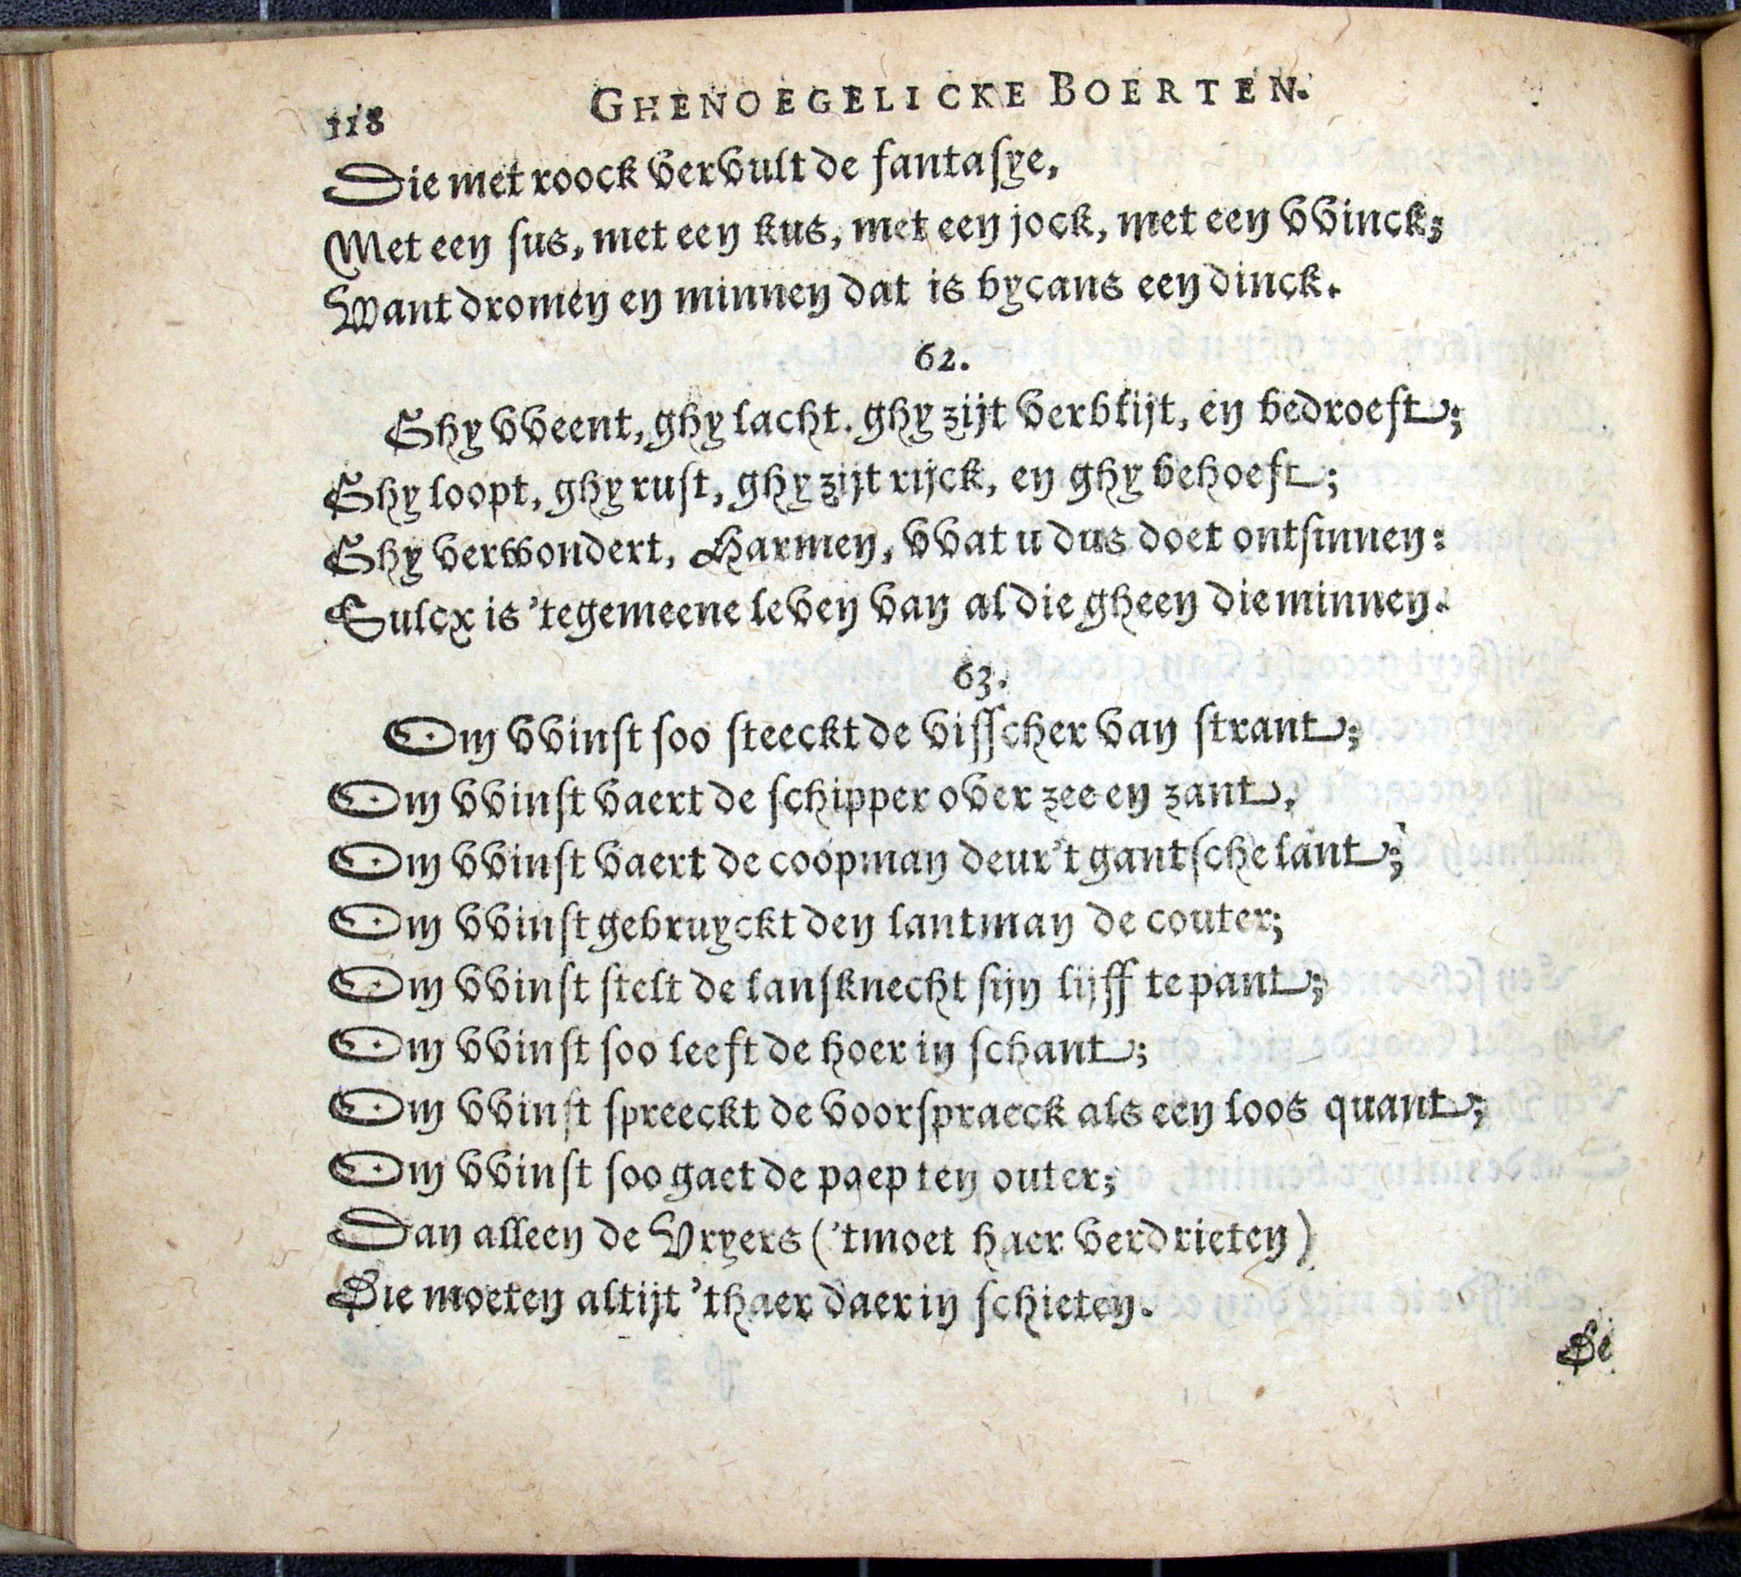 118 GHENOEGELICKE BOERTEN.
Die met roock vervult de fantasye,
Met een sus, met een kus, met een jock, met een vvinck;
Want dromen en minnen dat is bycans een dinck.
62.
Ghy vveent, ghy lacht. ghy zijt verblijt, en bedroeft;
Ghy loopt, ghy rust, ghy zijt rijck, en ghy behoeft;
Ghy verwondert, Harmen, vvat u dus doet ontsinnen:
Sulcx is 'tegemeene leven van al die gheen die minnen.
63.
Om vvinst soo steeckt de visscher van strant;
Om vvinst vaert de schipper over zee en zant,
Om vvinst vaert de coopman deur't gantsche lant;
Om vvinst gebruyckt den lantman de couter;
Om vvinst stelt de lansknecht sijn lijff te pant;
Om vvinst soo leeft de hoer in schant;
Om vvinst spreeckt de voorspraeck als een loos quant;
Om vvinst soo gaet de paep ten outer;
Dan alleen de Vryers ('tmoet haer verdrieten)
Die moeten altijt 'thaer daer in schieten.
De